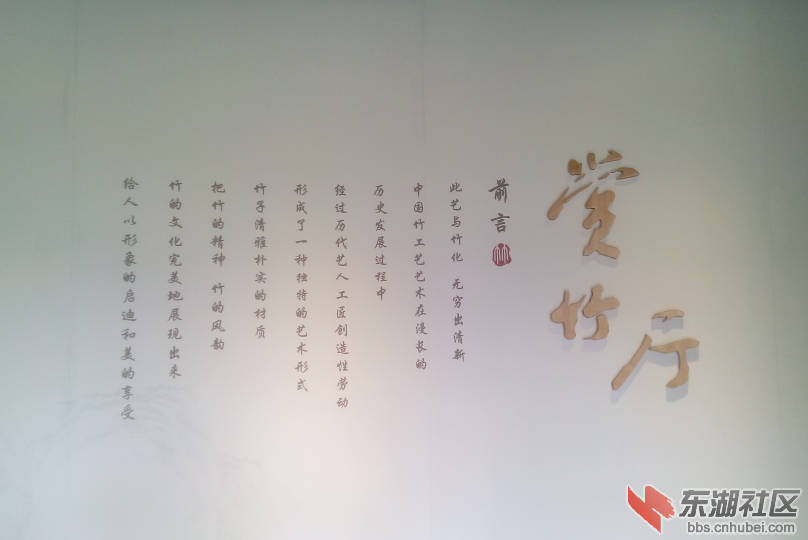 赏竹厅
前言
此艺与竹化 无穷出清新
中国竹工艺艺术在漫长的
历史发展过程中
经过历代艺人工匠创造性劳动
形成了一种独特的艺术形式
竹子清雅朴实的材质
把竹的精神 竹的风韵
竹的文化完美地展现出来
给人以形象的启迪和美的享受
东湖社区
bbs.cnhubei.com